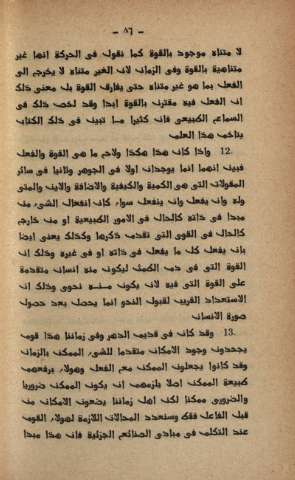 - ٨٦ -
لا متناه موجود بالقوة كما نقول فى الحركة انها غير
متناهية بالقوة وفى الزمان لان الغير متناه لا يخرج الى
الفعل بما هو غير متناه حتى يفارق القوة بل معنى ذلك
ان الفعل فيه مقترن بالقوة ابدا وقد لخص ذلك فى
السماع الطبيعى فان كثيرا مما تبين فى ذلك الكتاب
يتاخم هذا العلم
12. واذا كان هذا هكذا ولاح ما هى القوة والفعل
فبين انهما انما يوجدان اولا فى الجوهر وثانيا فى سائر
المقولات التى هى الكمية والكيفية والاضافة والاين والمتى
وله وان يفعل وان ينفعل سواء كان انفعال الشىء من
مبدا فى ذاته كالحال فى الامور الطبيعية او من خارج
كالحال فى القوى التى تقدم ذكرها وكذلك يعنى ايضا
بان يفعل كل ما يفعل فى ذاته او فى غيره وذلك ان
القوة التى فى دم الطمث ليكون منه انسان متقدمة
على القوة التى فيه لان يكون منه نحوى وذلك ان
الاستعداد القريب لقبول النحو انما يحصل بعد حصول
صورة الانسان
13. وقد كان فى قديم الدهر وفى زماننا هذا قوم
يجحدون وجود الامكان متقدما للشىء الممكن بالزمان
وقد كانوا يجعلون الممكن مع الفعل وهولاء يرفعهم
طبيعة الممكن اصلا يلزمهم ان يكون الممكن ضروريا
والضرورى ممكنا لكن اهل زماننا يضعون الامكان من
قبل الفاعل فقط وسنعدد المحالات اللازمة لهولاء القوم
عند التكلم فى مبادى الصنائع الجزئية فان هذا مبدا